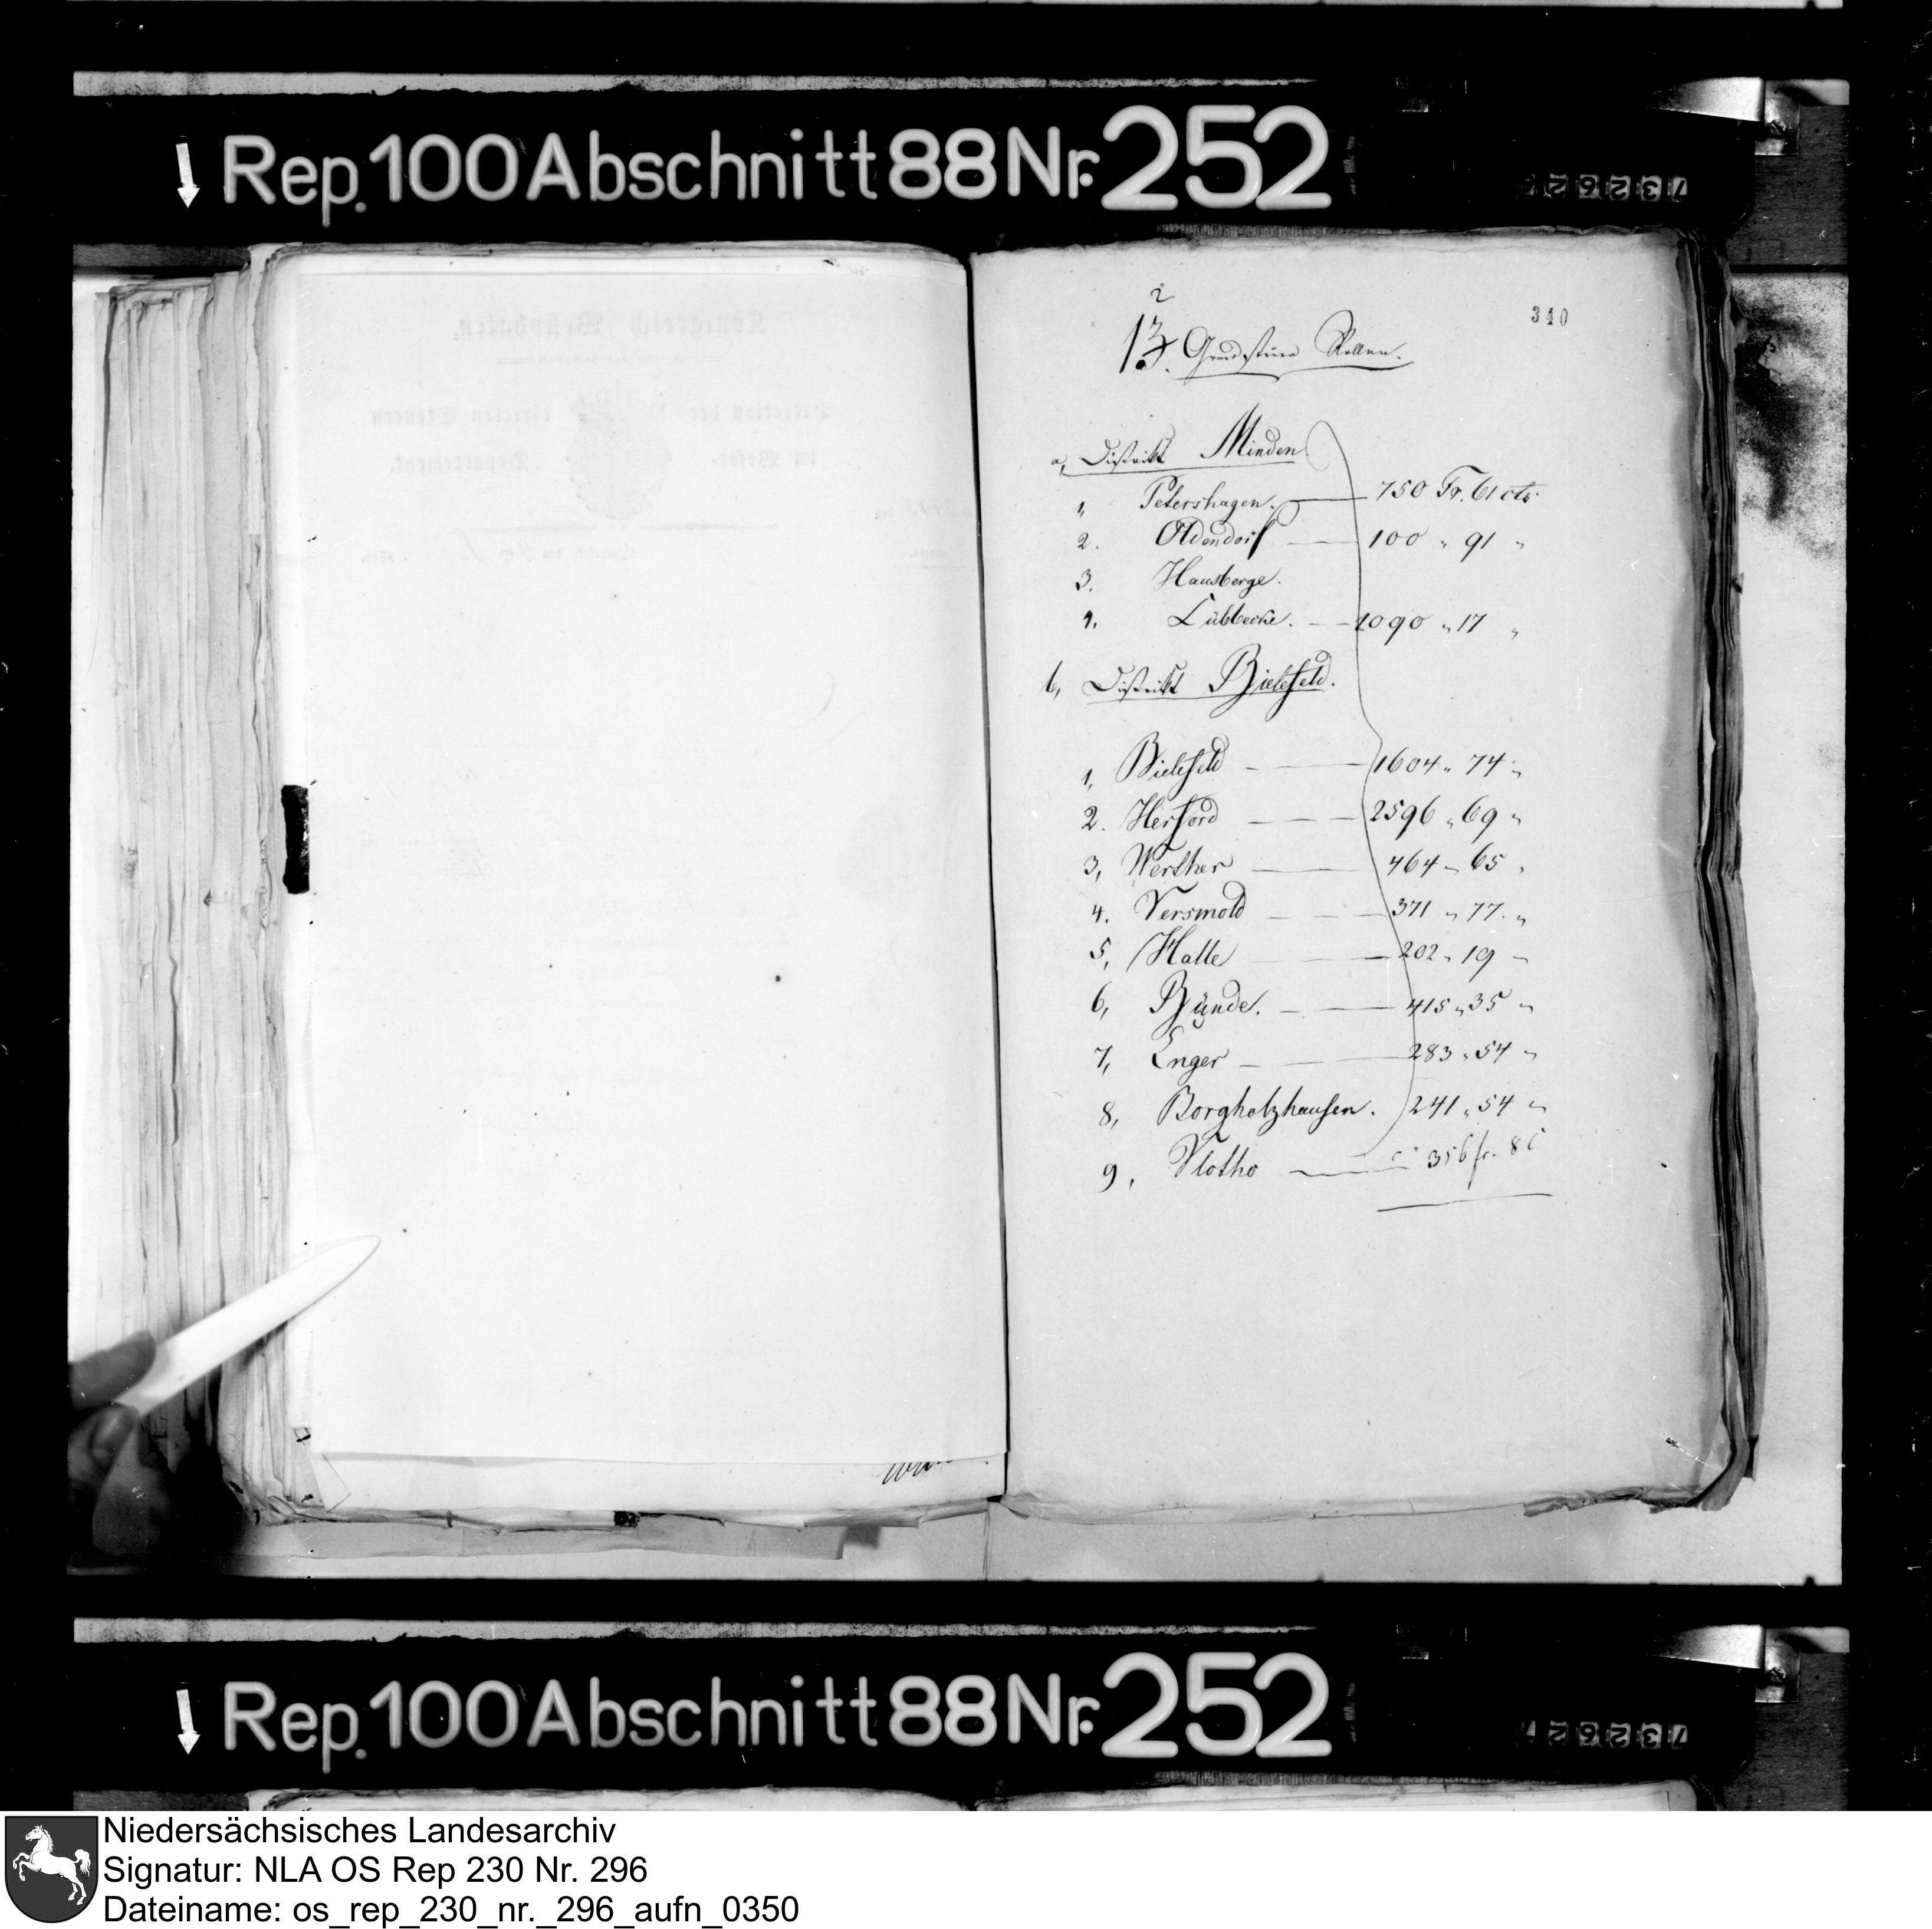 Rep. 100 Abschnitt 88 Nr. 252
732627
340
2
13. Grundsteuer Rollen.
a, Distrikt Minden.
1, Petershagen. — 750 Fr. 61 cts.
2. Oldendorf — 100 „ 91 „
3. Hausberge.
4. Lübbecke. — 1090 „ 17 „
b, Distrikt Bielefeld.
1, Bielefeld — — 1604 „ 74 „
2. Herford — — — 2596 „ 69 „
3, Werther — — 464 „ 65 „
4. Versmold — — — 371 „ 77. „
5, Halle — — — 202 „ 19 „
6, Bünde. — — 415 „ 35 „
7, Enger — — — 283 „ 54 „
8, Borgholzhausen. 241 „ 54 „
9, Vlotho — — 356 fr. 8 C
Rep. 100 Abschnitt 88 Nr. 252
732627
Niedersächsisches Landesarchiv
Signatur: NLA OS Rep 230 Nr. 296
Dateiname: os_rep_230_nr._296_aufn_0350